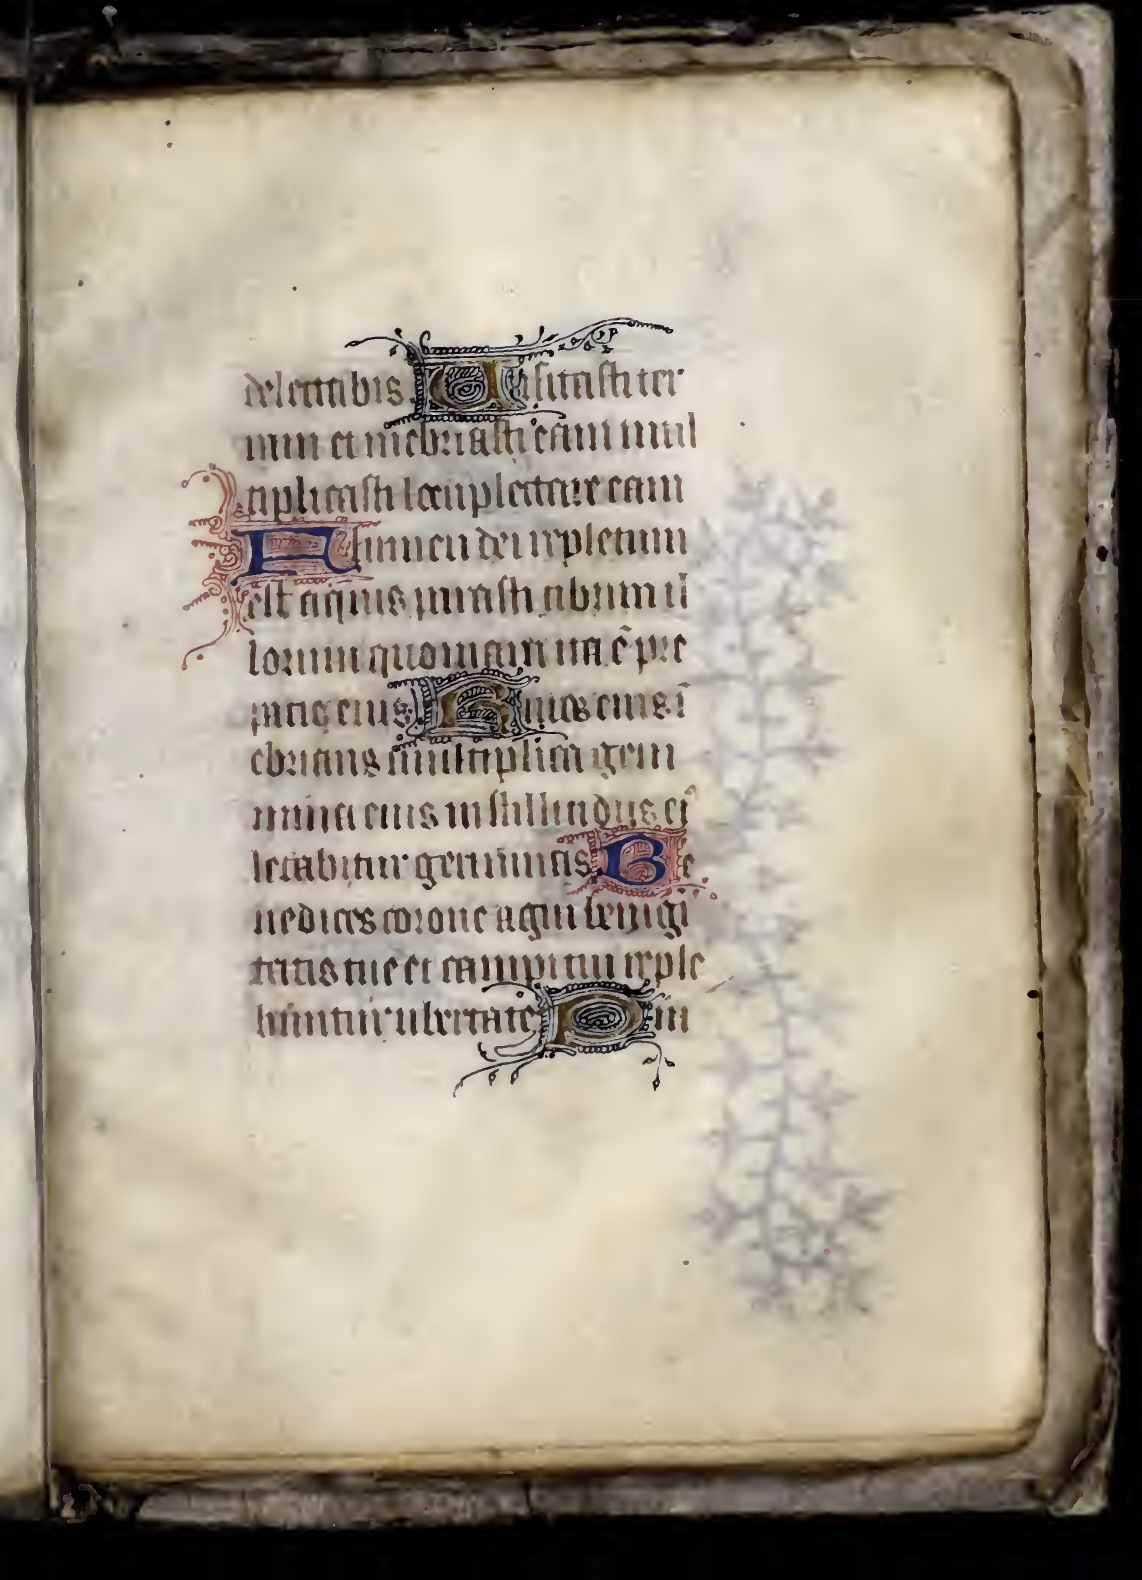 delectabis Uisitasti ter
ram et inebriasti eam mul
tiplicasti locupletare eam
Flumen dei repletum
est aquis parasti cibum il
lorum quoniam ita ē pre
patio eius Riuos eius ī
ebrians multiplica geni
mina eius in stillicidiis ei
letabitur germinans Be
nedices corone anni benigni
tatis tue et campi tui reple
buntur ubertate Pin